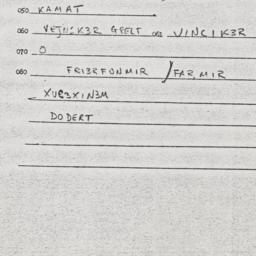 050 KAMAT
060 VEJNIK3R GEELT 061 VINCIK3R
070 O
080 FRI3RFDNMIR / FAR,MIR
XUE3XIN3M
DODERT